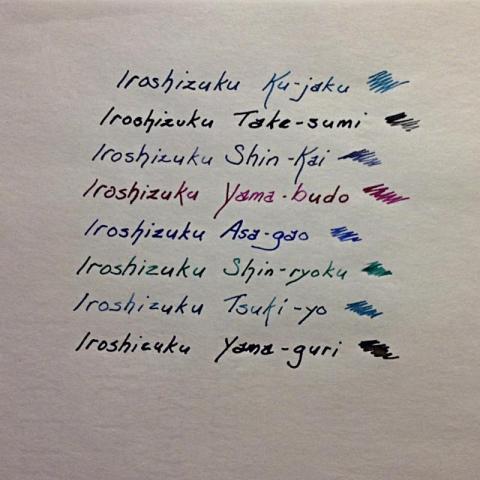 Iroshizuku Ku-jaku
Iroshizuku Take-sumi
Iroshizuku Shin-Kai
Iroshizuku Yama-budo
Iroshizuku Asa-gao
Iroshizuku Shin-ryoku
Iroshizuku Tsuki-yo
Iroshizuku Yama-guri